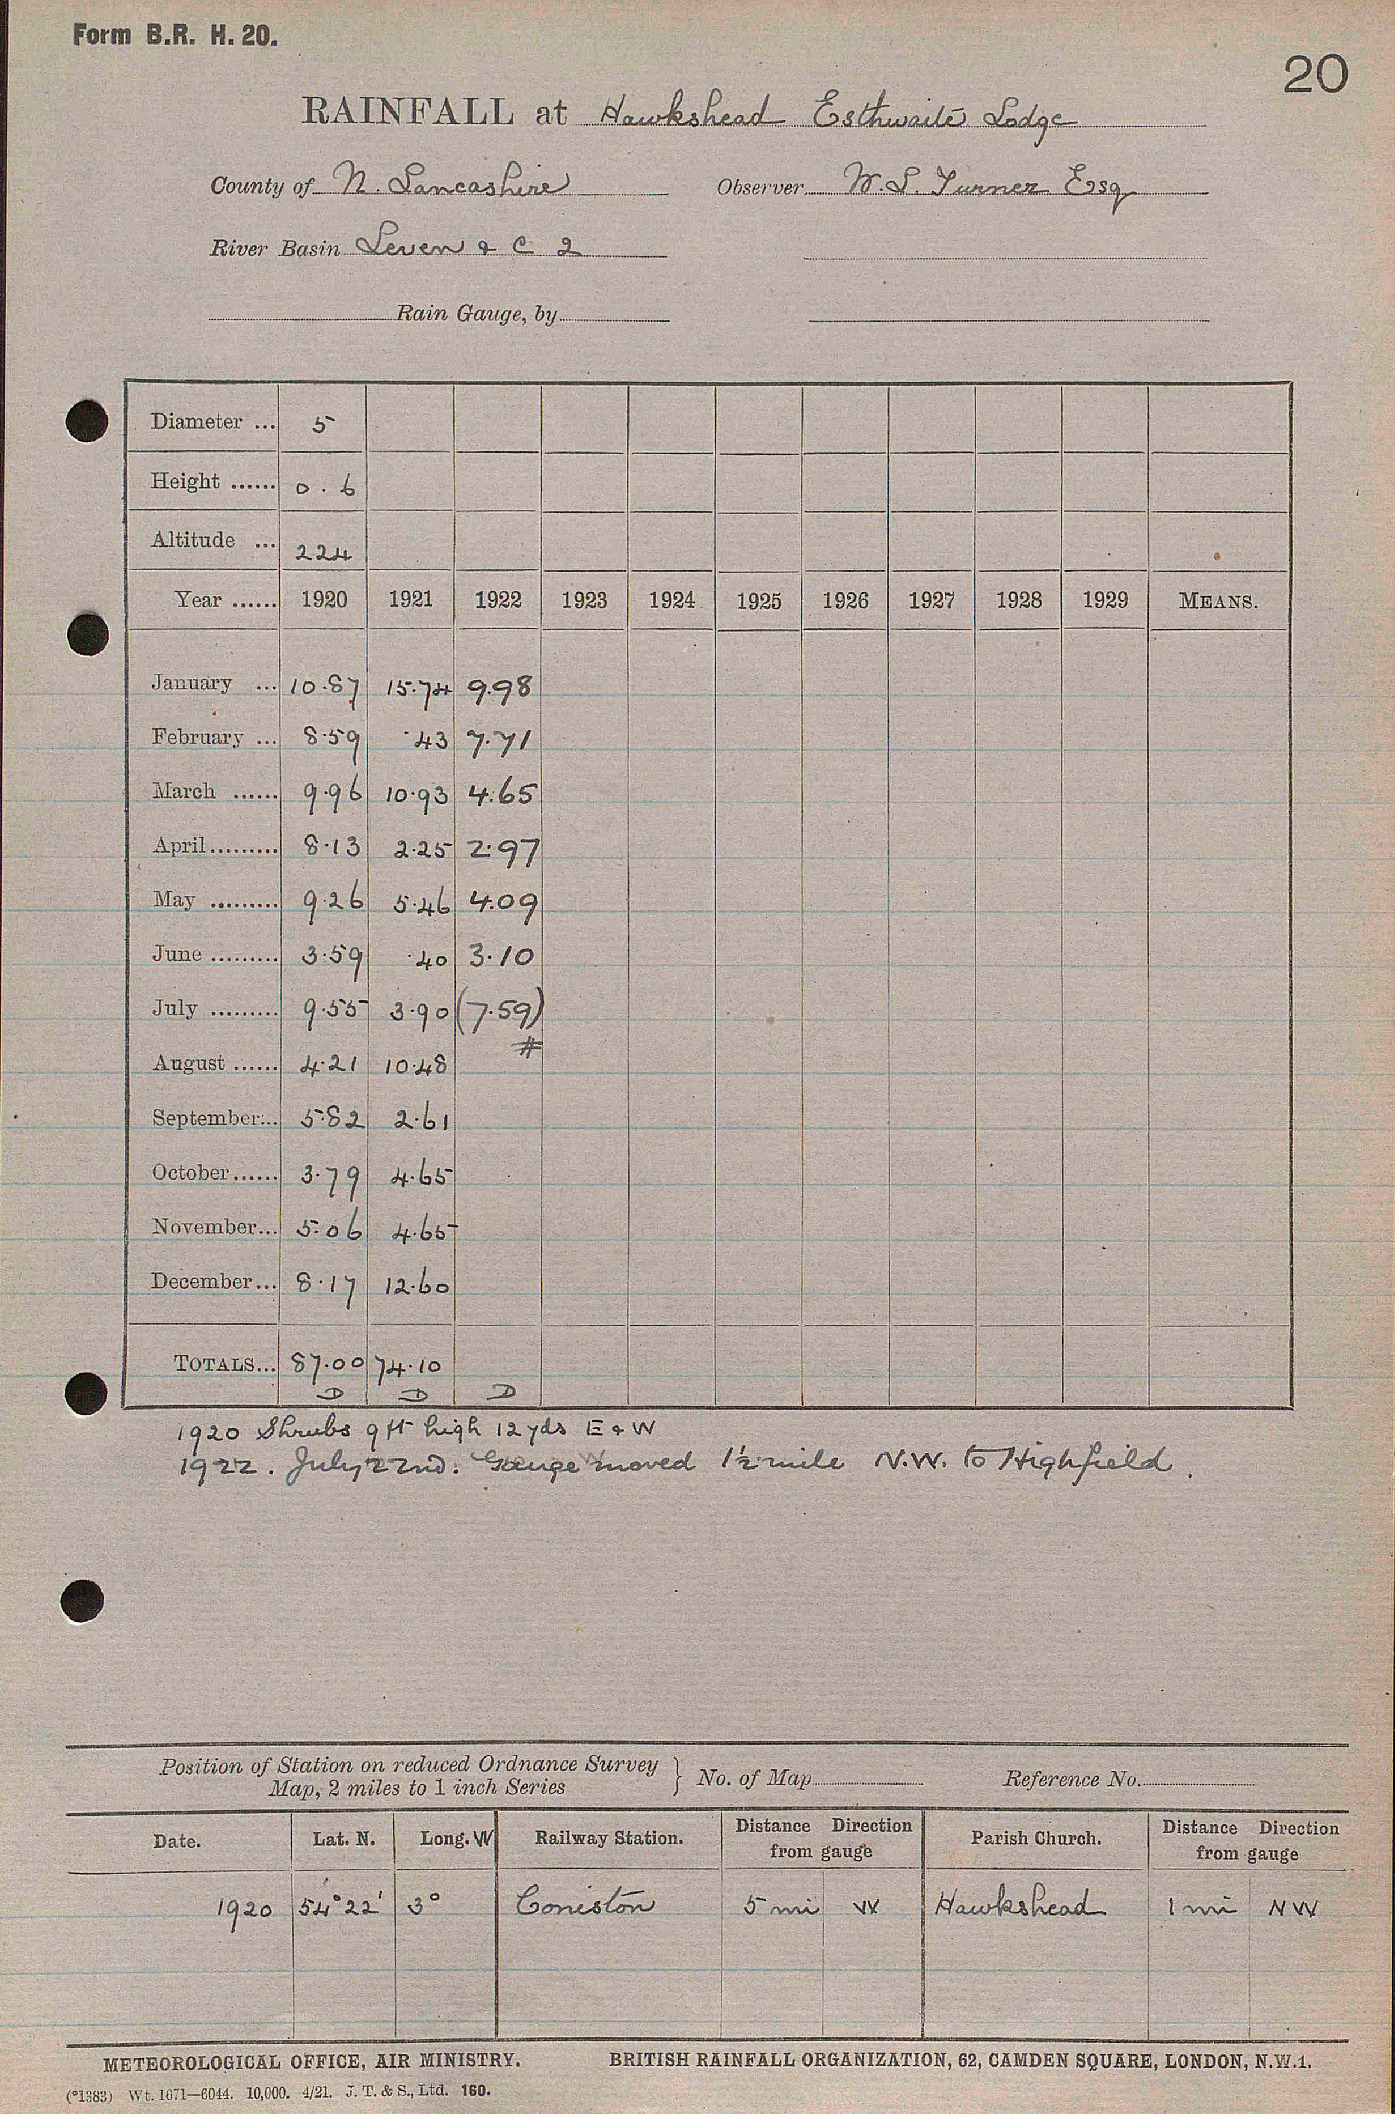 Form B.R. H. 20.
20
RAINFALL at Hawkshead Esthwaite Lodge
County of N. Lancashire Observer W. S. Turner Esq
River Basin Leven & C 2
Rain Gauge, by
Diameter ... 5
Height ...... 0.6
Altitude ... 224
Year ...... 1920 1921 1922 1923 1924 1925 1926 1927 1928 1929 MEANS.
January ... 10.87 15.74 9.98
February ... 8.59 .43 7.71
March ...... 9.96 10.93 4.65
April ......... 8.13 2.25 2.97
May ......... 9.26 5.46 4.09
June ......... 3.59 .40 3.10
July ......... 9.55 3.90 (7.59)
#
August ...... 4.21 10.48
September... 5.82 2.61
October ...... 3.79 4.65
November... 5.06 4.65
December... 8.17 12.60
TOTALS... 87.00 74.10
D D D
1920 Shrubs 9 ft high 12 yds E & W
1922. July 22nd. Gauge moved 1½ mile N.W. to Highfield.
Position of Station on reduced Ordnance Survey
Map, 2 miles to 1 inch Series } No. of Map Reference No.
Date. Lat. N. Long. W Railway Station. Distance Direction from gauge Parish Church. Distance Direction from gauge
1920 54° 22' 3° Coniston 5 mi W Hawkshead 1 mi NW
METEOROLOGICAL OFFICE, AIR MINISTRY. BRITISH RAINFALL ORGANIZATION, 62, CAMDEN SQUARE, LONDON, N.W.1.
(*1383) Wt. 1671—6044. 10,000. 4/21. J. T. & S., Ltd. 160.